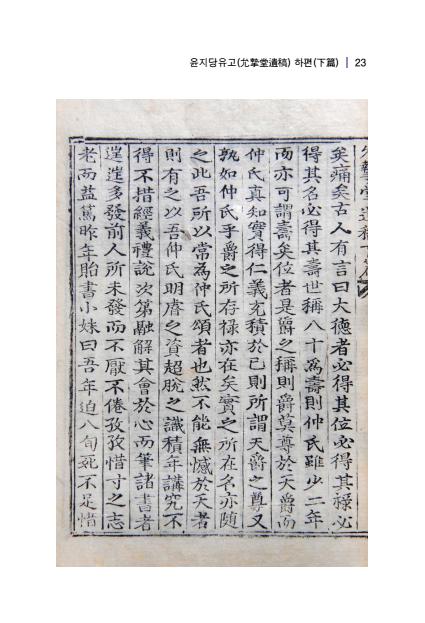 윤지당유고(允摯堂遺稿) 하편(下篇) | 23
矣痛矣古人有言曰大德者必得其位必得其祿必
得其名必得其壽世稱八十爲壽則仲氏雖少二年
而亦可謂壽矣位者是爵之稱則爵莫尊於天爵而
仲氏真知實得仁義充積於已則所謂天爵之尊又
孰如仲氏乎爵之所存祿亦在矣實之所在名亦隨
之此吾所以常為仲氏頌者也然不能無憾於天者
則有之以吾仲氏明睿之資超脫之識積年講究不
得不措經義禮說次第融解其會於心而筆諸書者
逞逞多發前人所未發而不厭不倦孜孜惜寸之志
老而益篤昨年貽書小妹曰吾年迫八旬死不足惜